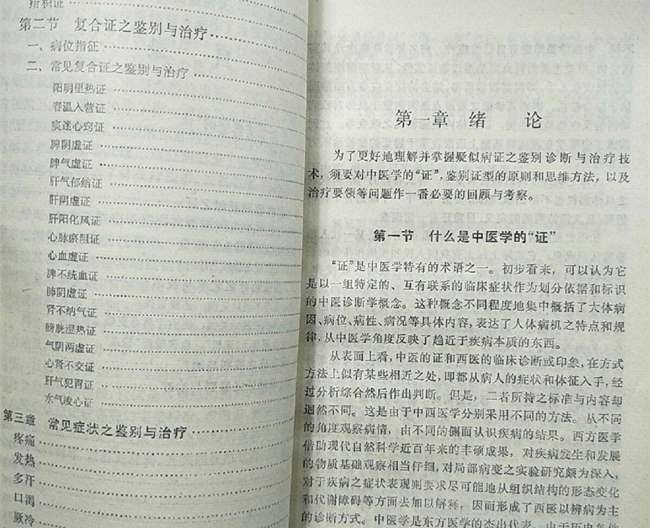 指积证
第二节 复合证之鉴别与治疗
一、病位指征
二、常见复合证之鉴别与治疗
阳明里热证
春温入营证
痰迷心窍证
脾阴虚证
脾气虚证
肝气郁结证
肝阴虚证
肝阳化风证
心脉瘀阻证
心血虚证
脾不统血证
肺阴虚证
肾不纳气证
膀胱湿热证
气阴两虚证
心肾不交证
肝气犯胃证
水气凌心证
第三章 常见症状之鉴别与治疗
疼痛
发热
多汗
口渴
厥冷
第一章 绪 论
为了更好地理解并掌握疑似病证之鉴别诊断与治疗技
术，须要对中医学的“证”，鉴别证型的原则和思维方法，以及
治疗要领等问题作一番必要的回顾与考察。
第一节 什么是中医学的“证”
“证”是中医学特有的术语之一。初步看来，可以认为它
是以一组特定的、互有联系的临床症状作为划分依据和标识
的中医诊断学概念。这种概念不同程度地集中概括了大体病
因、病位、病性、病况等具体内容，表达了人体病机之特点和规
律，从中医学角度反映了趋近于疾病本质的东西。
从表面上看，中医的证和西医的临床诊断或印象，在方式
方法上似有某些相近之处，即都从病人的症状和体征入手，经
过分析综合然后作出判断。但是，二者所持之标准与内容却
迥然不同。这是由于中西医学分别采用不同的方法。从不同
的角度观察病情，由不同的侧面认识疾病的结果。西方医学
借助现代自然科学近百年来的丰硕成果，对疾病发生和发展
的物质基础观察相当仔细，对局部病变之实验研究颇为深入，
对于疾病之症状表现则要求尽可能地从组织结构的形态变化
和代谢障碍等方面去加以解释，因而形成了西医以辨病为主
的诊断方式。中医学是东方医学的杰出代表，中医历史